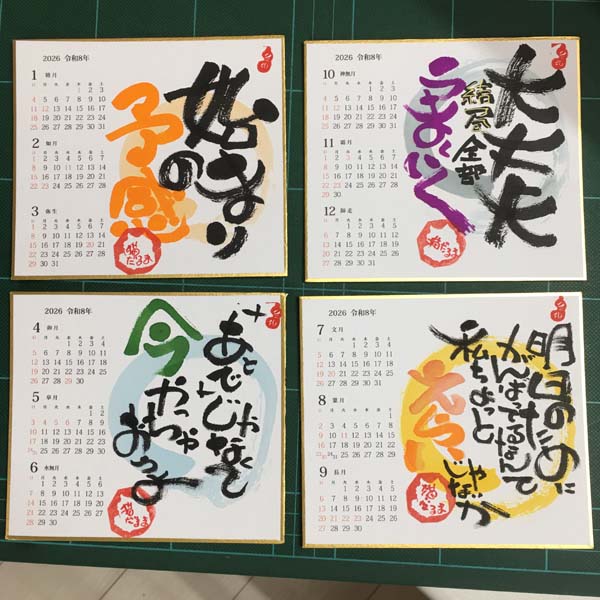 2026 令和8年
1 睦月
日 月 火 水 木 金 土
1 2 3
4 5 6 7 8 9 10
11 12 13 14 15 16 17
18 19 20 21 22 23 24
25 26 27 28 29 30 31
2 如月
日 月 火 水 木 金 土
1 2 3 4 5 6 7
8 9 10 11 12 13 14
15 16 17 18 19 20 21
22 23 24 25 26 27 28
3 弥生
日 月 火 水 木 金 土
1 2 3 4 5 6 7
8 9 10 11 12 13 14
15 16 17 18 19 20 21
22 23 24 25 26 27 28
29 30 31
始まり
の
予感
猫だるま
2026 令和8年
10 神無月
日 月 火 水 木 金 土
1 2 3
4 5 6 7 8 9 10
11 12 13 14 15 16 17
18 19 20 21 22 23 24
25 26 27 28 29 30 31
11 霜月
日 月 火 水 木 金 土
1 2 3 4 5 6 7
8 9 10 11 12 13 14
15 16 17 18 19 20 21
22 23 24 25 26 27 28
29 30
12 師走
日 月 火 水 木 金 土
1 2 3 4 5
6 7 8 9 10 11 12
13 14 15 16 17 18 19
20 21 22 23 24 25 26
27 28 29 30 31
大丈夫
結局全部
うまくいく
猫だるま
2026 令和8年
4 卯月
日 月 火 水 木 金 土
1 2 3 4
5 6 7 8 9 10 11
12 13 14 15 16 17 18
19 20 21 22 23 24 25
26 27 28 29 30
5 皐月
日 月 火 水 木 金 土
1 2
3 4 5 6 7 8 9
10 11 12 13 14 15 16
17 18 19 20 21 22 23
24/31 25 26 27 28 29 30
6 水無月
日 月 火 水 木 金 土
1 2 3 4 5 6
7 8 9 10 11 12 13
14 15 16 17 18 19 20
21 22 23 24 25 26 27
28 29 30
あとでじゃなくて
今
やっちゃ
おっと
猫だるま
2026 令和8年
7 文月
日 月 火 水 木 金 土
1 2 3 4
5 6 7 8 9 10 11
12 13 14 15 16 17 18
19 20 21 22 23 24 25
26 27 28 29 30 31
8 葉月
日 月 火 水 木 金 土
1
2 3 4 5 6 7 8
9 10 11 12 13 14 15
16 17 18 19 20 21 22
23/30 24/31 25 26 27 28 29
9 長月
日 月 火 水 木 金 土
1 2 3 4 5
6 7 8 9 10 11 12
13 14 15 16 17 18 19
20 21 22 23 24 25 26
27 28 29 30
明日のために
がんばってるなんて
私ちょっと
えらい
じゃないか
猫だるま